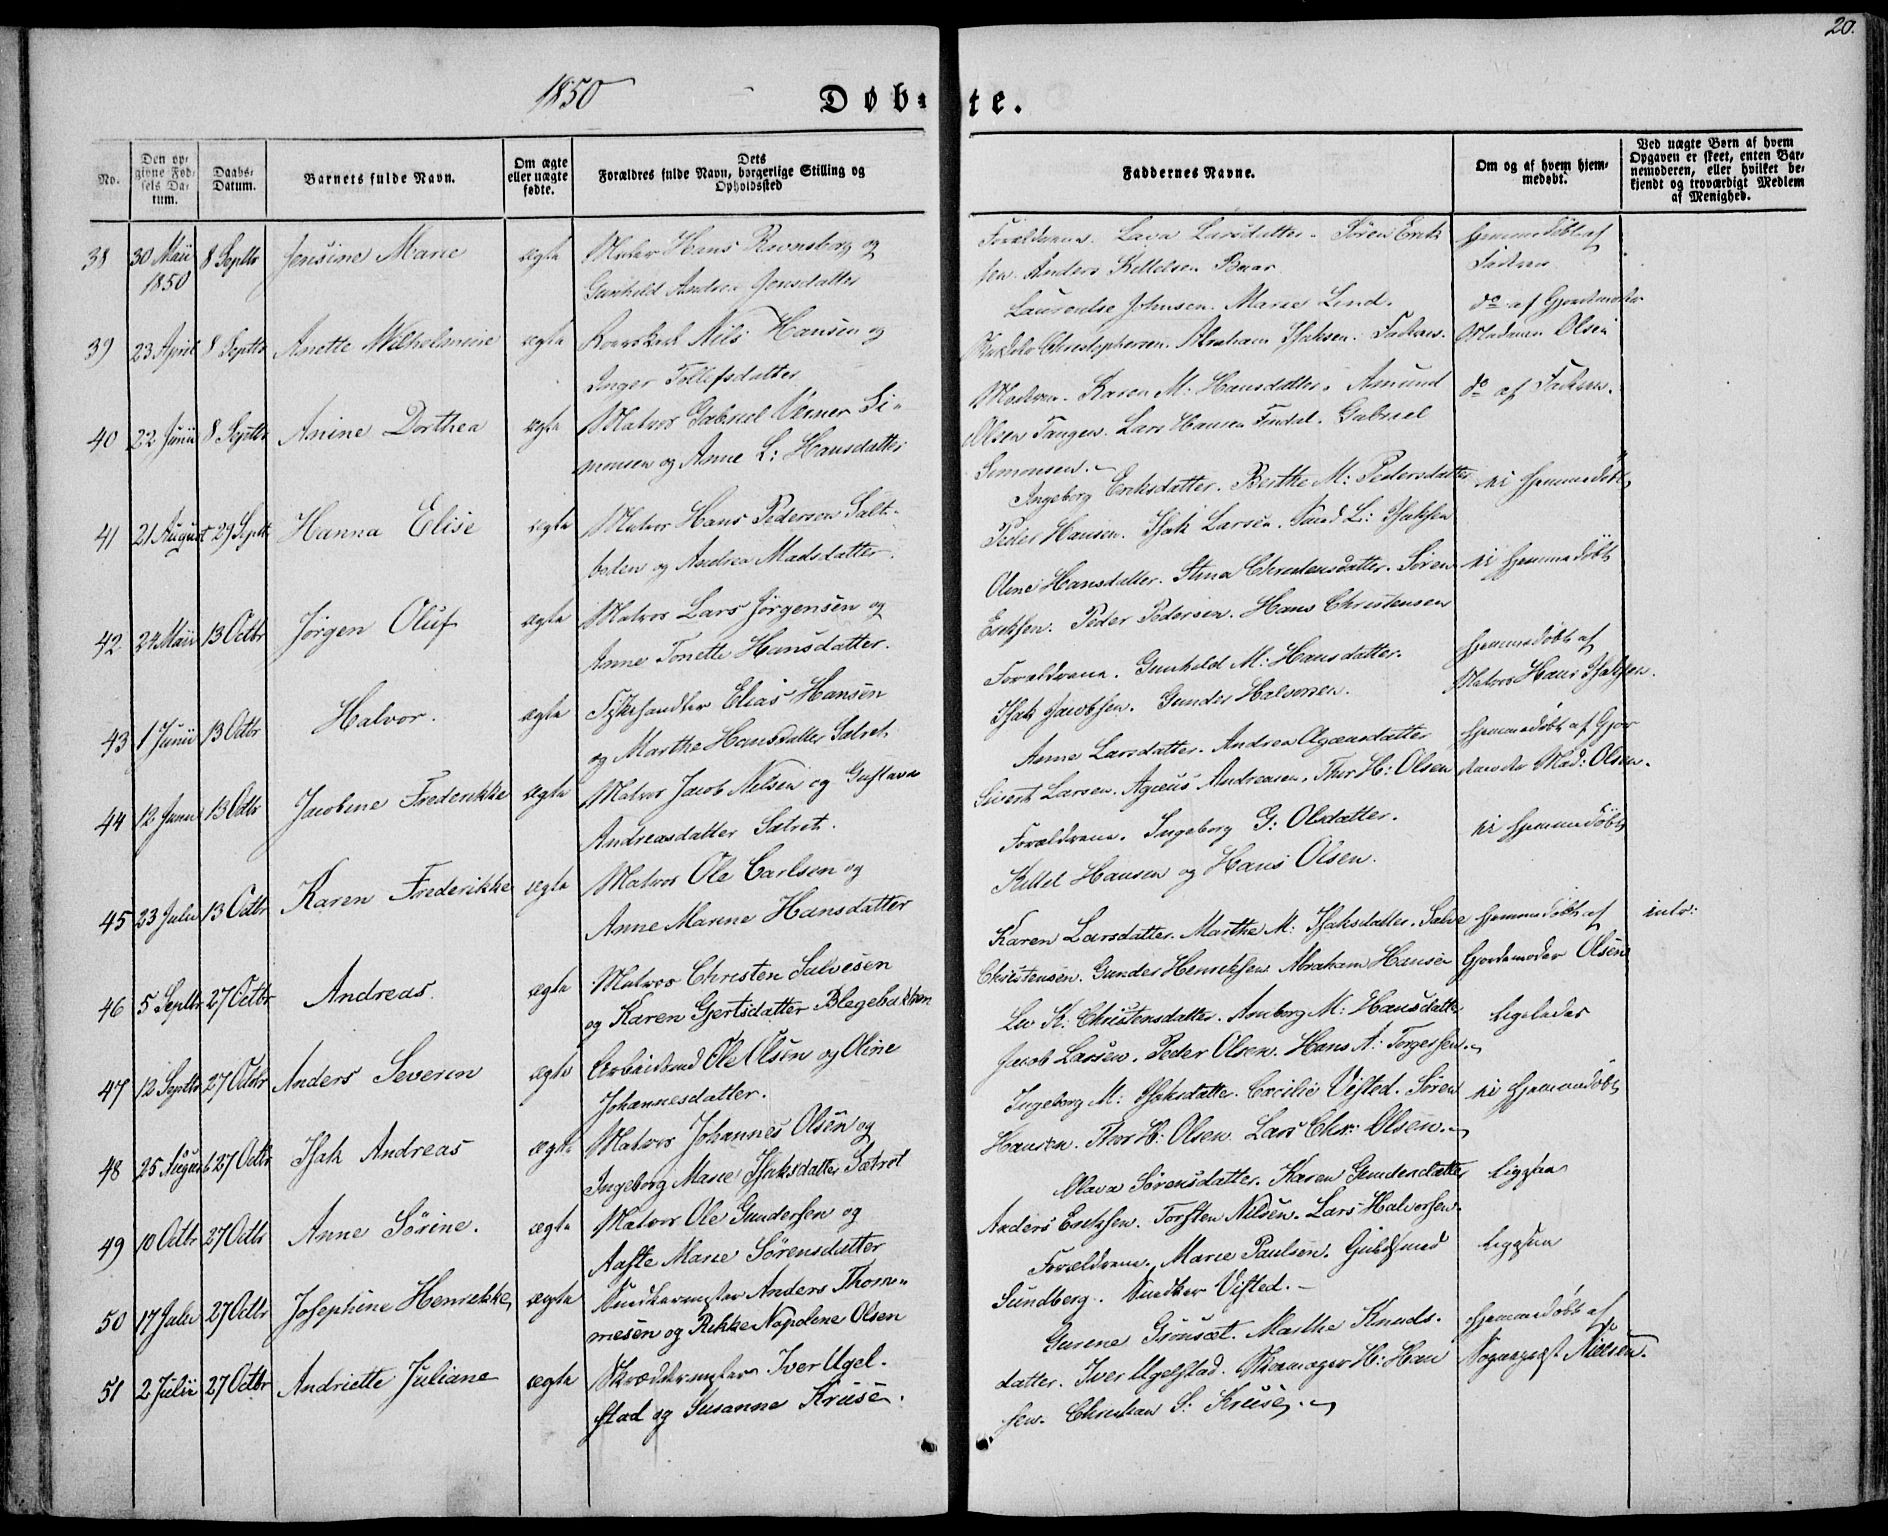 20.
1850
Døbte.
No.
Den opgivne Fødsels Datum.
Daabs-Datum.
Barnets fulde Navn.
Om ægte eller uægte fødte.
Dets Forældres fulde Navn, borgerlige Stilling og Opholdssted
Faddernes Navne.
Om og af hvem hjemmedøbt.
Ved uægte Børn af hvem Opgaven er skeet, enten Barnemoderen, eller hvilket bekjendt og troværdigt Medlem af Menighed.
38 30 Mai 1850 8 Septbr Jensine Marie ægte
Hans Ravnsborg og
Gunhild Andrea Jensdatter
Forældrene. Lava Larsdatter. Søren Erik
sen. Anders Kittelsen Baar
Hjemmedøbt af
Faderen
39 23 April 8 Septbr Anette Wilhelmine ægte
Nils Hansen og
Inger Tollefsdatter
Laurentse Johnsen. Marie Lind.
Christophersen. Abraham Isaksen. Faderen.
do af Gjordemoder
Madamen Olsen
40 22 Junii 8 Septbr Anine Dorthea ægte
Matros Gabriel Verner Si-
monsen og Anne L: Hansdatter
Moderen. Karen M: Hansdatter. Amund
Olsen Tangen. Lars Hansen Findal. Gabriel
Simonsen.
do af Faderen.
41 21 August 29 Septbr Hanna Elise ægte
Matros Hans Pederson Salt-
boden og Andrea Madsdatter.
Ingeborg Eriksdatter. Berthe M: Pedersdatter
Peder Hansen. Isak Larsen. L: Isaksen
ei hjemmedøbt
42 24 Maii 13 Octbr Jørgen Oluf ægte
Matros Lars Jørgensen og
Anne Tonette Hansdatter.
Oline Hansdatter. Stina Christensdatter. Søren
Eriksen. Peder Pedersen. Hans Christensen
ei hjemmedøbt
43 1 Junii 13 Octbr Halvor. ægte
Fiskehandler Elias Hansen
og Marthe Hansdatter Sætret
Forældrene. Gunhild M: Hansdatter.
Isak Jacobsen. Gunder Halvorsen.
hjemmedøbt af
Matros Hans Isaksen.
44 12 Junii 13 Octbr Jacobine Frederikke ægte
Matros Jacob Nilsen og Gustava
Andreasdatter Sætret.
Anne Larsdatter. Andrea Olgæusdatter
Sivert Larsen. Agæus Andreasen. Thor H: Olsen
hjemmedøbt af Gjor
demoder Mad: Olsen.
45 23 Julii 13 Octbr Karen Frederikke ægte
Matros Ole Carlsen og
Anne Marine Hansdatter
Forældrene. Ingeborg G: Olsdatter.
Kittel Hansen og Hans Olsen.
ei hjemmedøbt
46 5 Septbr 27 Octbr Andreas. ægte
Matros Christen Salvesen
og Karen Gjertsdatter Blegebakken
Karen Larsdatter. Marthe M: Isaksdatter. Salve
Christensen. Gunder Henriksen. Abraham Hansen
hjemmedøbt af
Gjordemoder Olsen
intr:
47 12 Septbr 27 Octbr Anders Severin ægte
Arbeidsmd Ole Olsen og Oline
Johannesdatter.
K: Christensdatter. Anborg M: Hansdatter
Jacob Larsen. Peder Olsen. Hans A: Torgersen.
ligeledes
48 25 August 27 Octbr Isak Andreas ægte
Matros Johannes Olsen og
Ingeborg Marie Isaksdatter Sætret
Ingeborg M: Isaksdatter. Cæcilie Vifsted. Søren
Hansen. Thor H: Olsen. Lars Chr: Olsen.
ei hjemmedøbt
49 10 Octbr 27 Octbr Anne Sørine. ægte
Matros Ole Gundersen og
Aaste Marie Sørensdatter
Olava Sørensdatter. Karen Gundersdatter
Anders Eriksen. Torsten Nilsen. Lars Halvorsen.
ligesaa
50 17 Julii 27 Octbr Josephine Henrikke, ægte
Snedkermester Anders Thom-
mesen og Rikke Napoline Olsen
Forældrene. Marie Paulsen. Guldsmed
Sundberg. Snedker Vifsted.
ligesaa
51 2 Julii 27 Octbr Andriette Juliane ægte
Skræddermester Iver Ugel-
stad og Susanne Kruse.
Gurene Grønsæt. Marthe Knuds-
datter. Iver Ugelstad. Skomager H: Han
sen. Christian S: Kruse.
hjemmedøbt af
Sogneprest Nielsen.